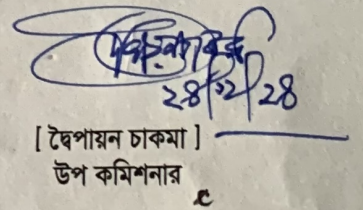 ২৪/১২/২৪
[ দ্বৈপায়ন চাকমা ]
উপ কমিশনার